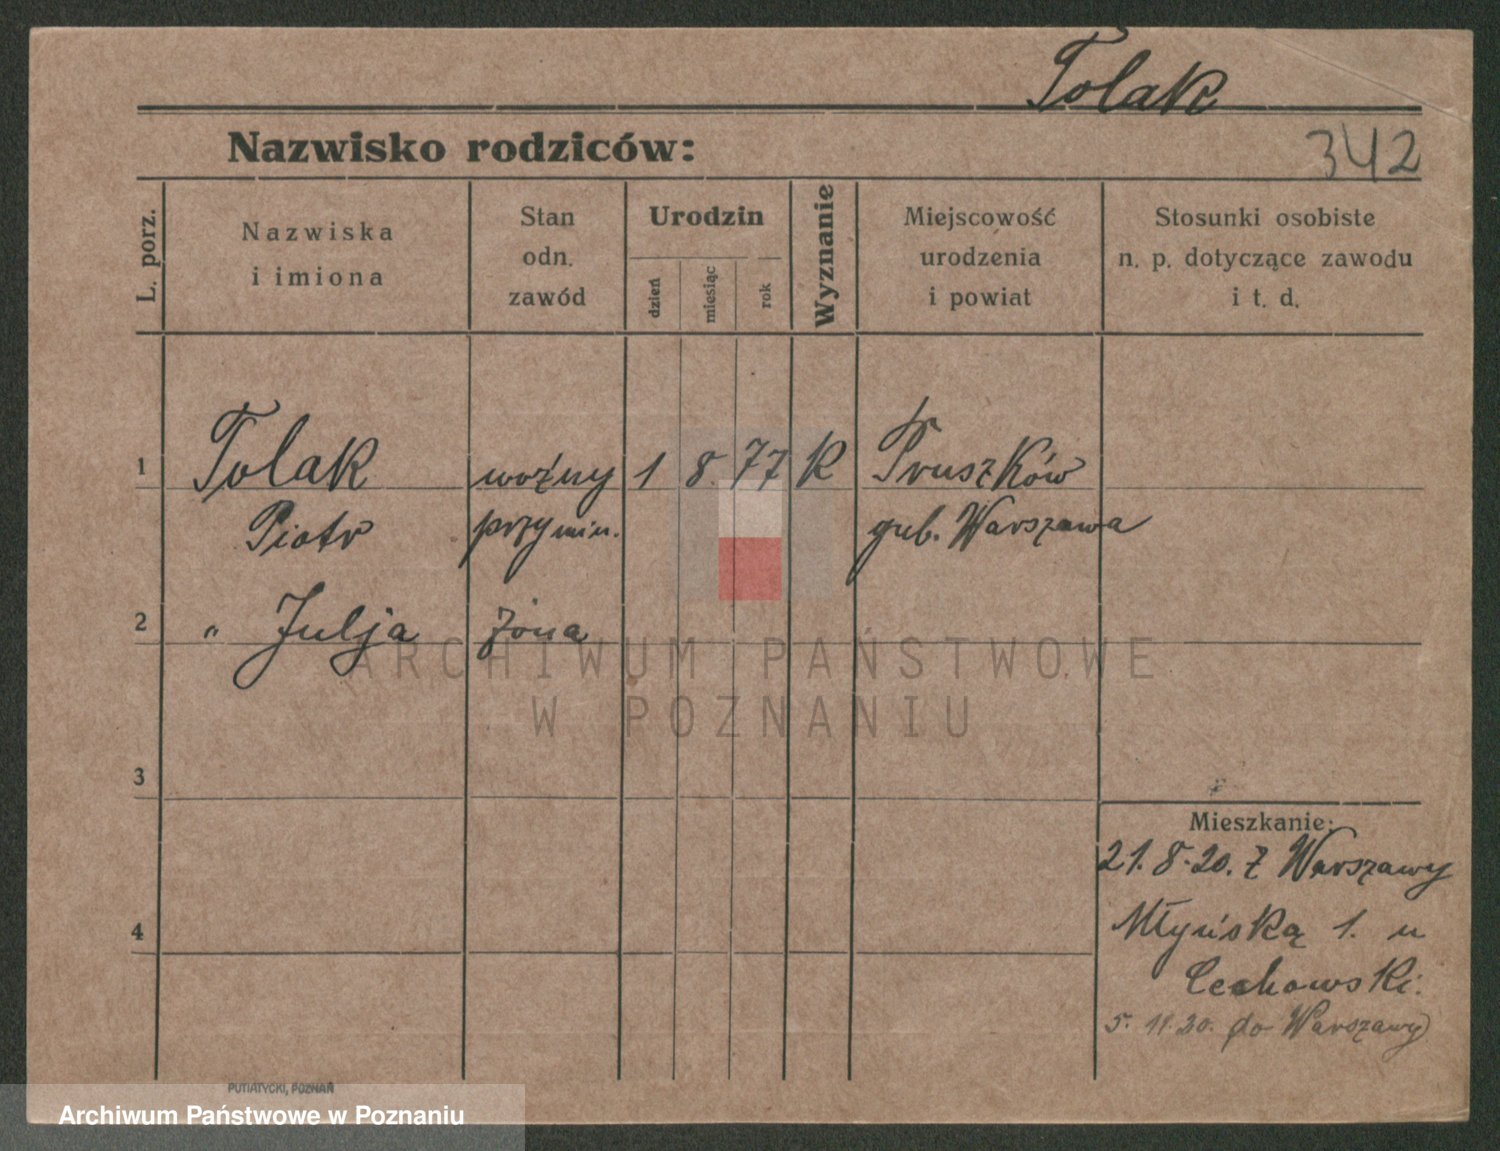 Tolak
Nazwisko rodziców:
342
L. porz.
Nazwiska
i imiona
Stan
odn.
zawód
Urodzin
dzień
miesiąc
rok
Wyznanie
Miejscowość
urodzenia
i powiat
Stosunki osobiste
n. p. dotyczące zawodu
i t. d.
1 Tolak woźny 1 8. 77 K Pruszków
Piotr przy min. gub. Warszawa
2 " Julja żona
ARCHIWUM PAŃSTWOWE
W POZNANIU
3
Mieszkanie:
21. 8. 20. z Warszawy
4 Młyńską 1. u
Cechowski.
5. 11. 20. do Warszawy
PUTIATYCKI, POZNAŃ
Archiwum Państwowe w Poznaniu